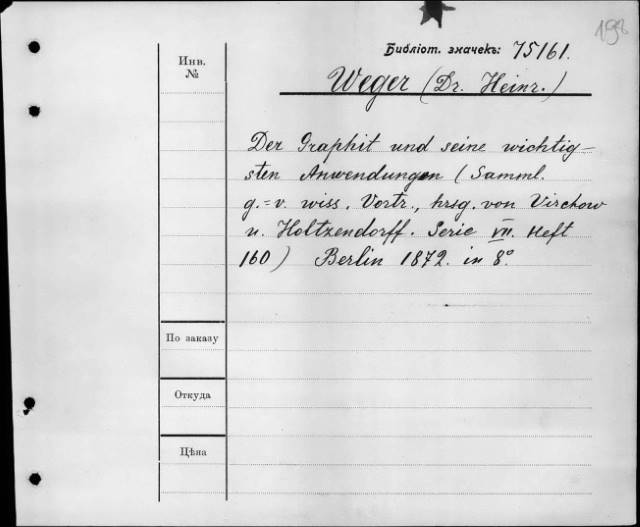 198
Библіот. значекъ: 75161.
Инв.
№
Weger (Dr. Heinr.)
Der Graphit und seine wichtig-
sten Anwendungen (Samml.
g.=v. wiss. Vortr., hrsg. von Virchow
u. Holtzendorff. Serie VII. Heft
160) Berlin 1872. in 8°.
По заказу
Откуда
Цѣна